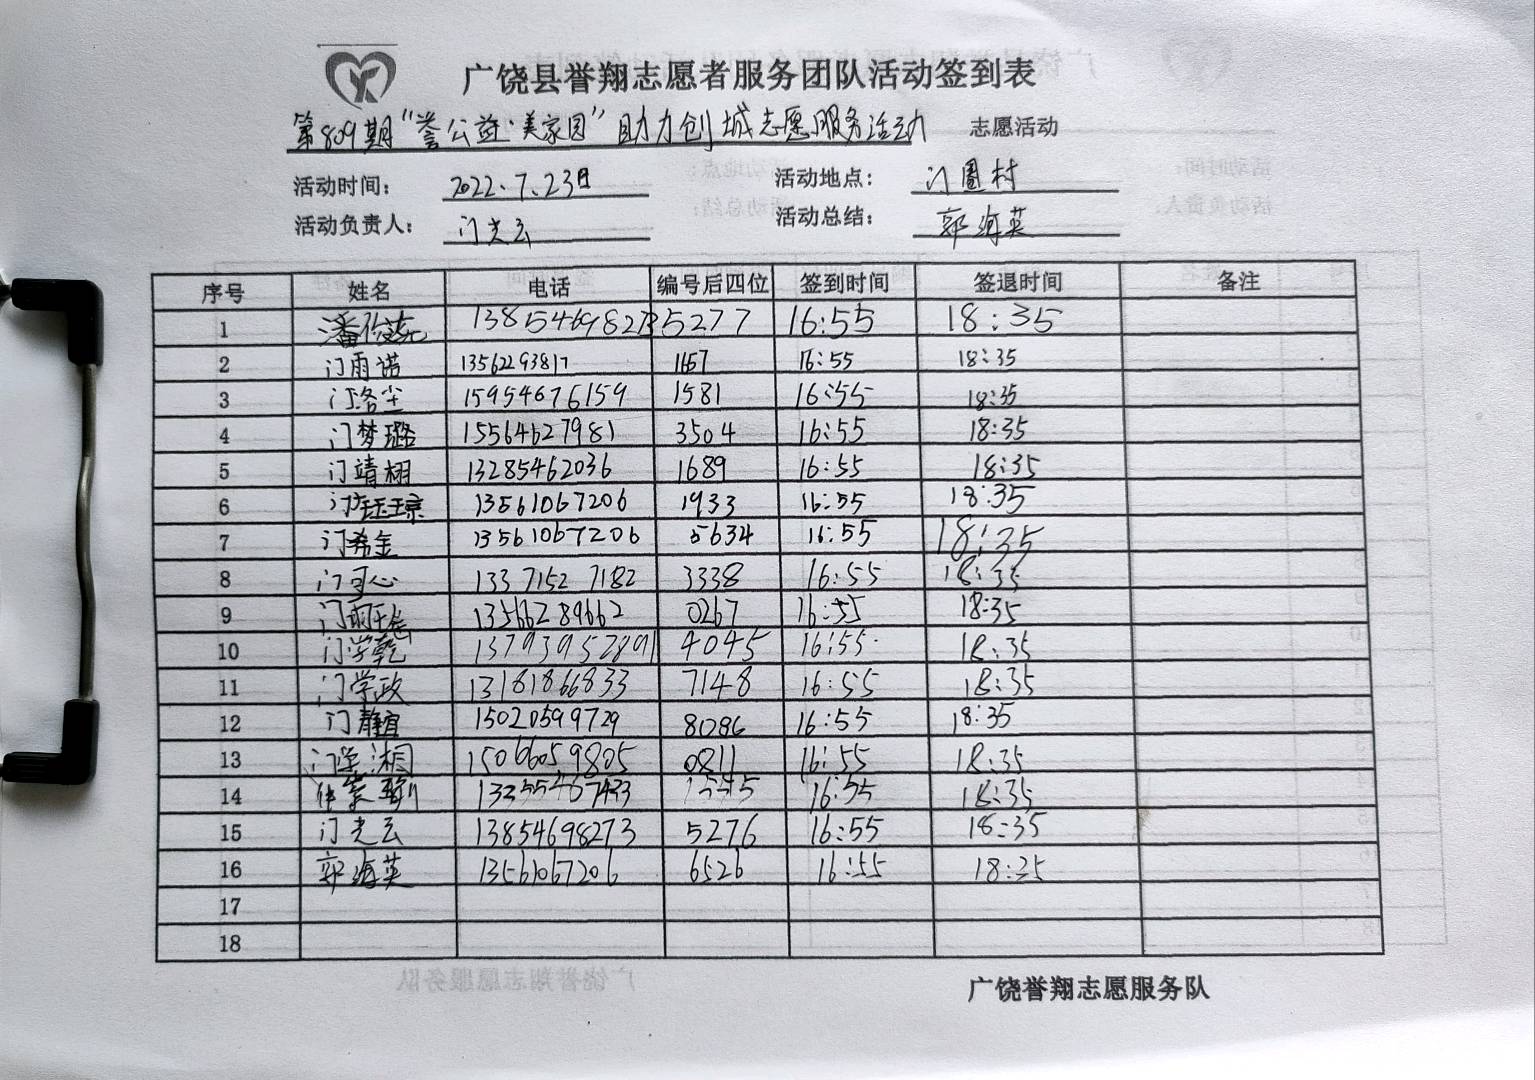 广饶县誉翔志愿者服务团队活动签到表
第809期“誉公益·美家园”助力创城志愿服务活动 志愿活动
活动时间： 2022.7.23日 活动地点： 门圈村
活动负责人： 门光云 活动总结： 郭海英
序号 姓名 电话 编号后四位 签到时间 签退时间 备注
1 13854698273 5277 16:55 18:35
2 门雨诺 13562293817 1657 16:55 18:35
3 门洛尘 15954676159 1581 16:55 18:35
4 门梦璐 15564627981 3504 16:55 18:35
5 门靖栩 13285462036 1689 16:55 18:35
6 13561067206 1933 16:55 18:35
7 门希金 13561067206 5634 16:55 18:35
8 门可心 13371527182 3338 16:55 18:35
9 13566289662 0267 16:55 18:35
10 门学乾 13793952891 4045 16:55 18:35
11 门学政 13181866833 7148 16:55 18:35
12 门静宜 15020599729 8086 16:55 18:35
13 门学湘 15066059805 0811 16:55 18:35
14 16:55 18:35
15 门光云 13854698273 5276 16:55 18:35
16 郭海英 13561067206 6526 16:55 18:35
17
18
广饶誉翔志愿服务队